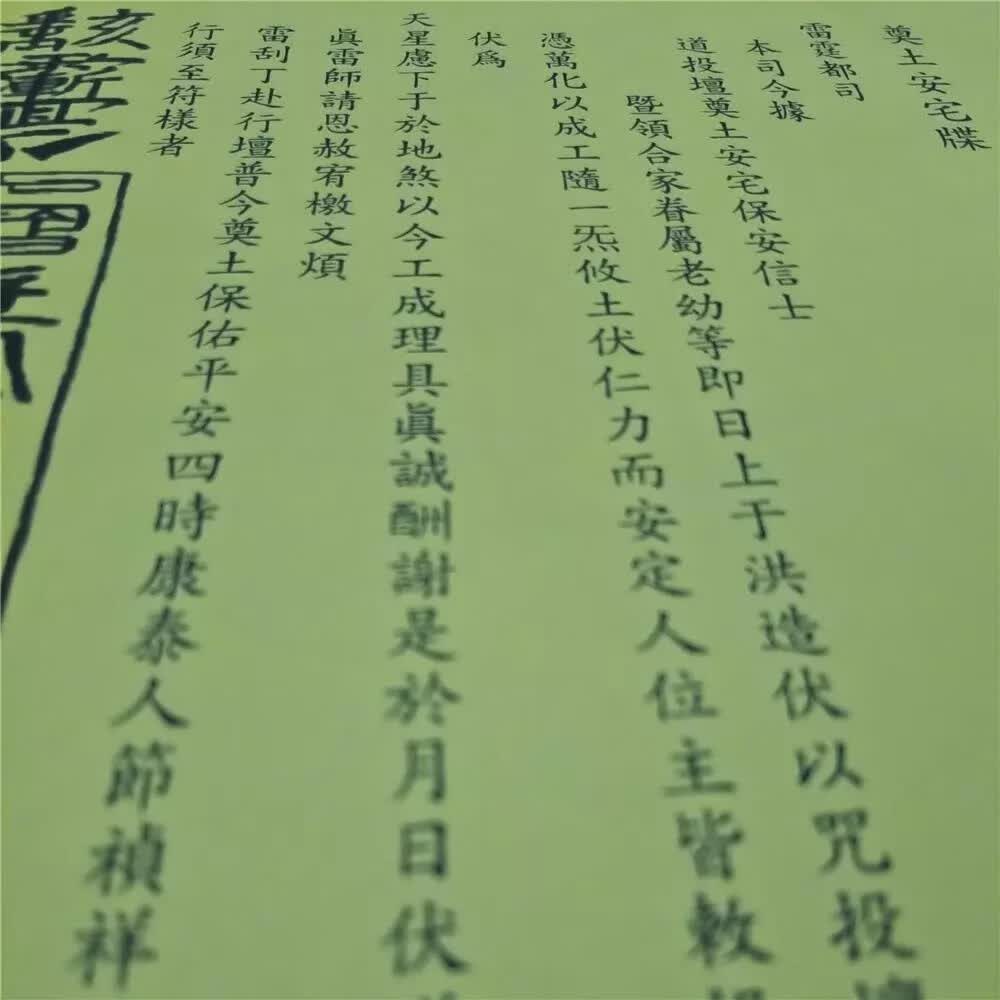 奠土安宅牒
雷霆都司
本司今據
道投壇奠土安宅保安信士
暨領合家眷屬老幼等即日上于洪造伏以咒投壇
憑萬化以成工隨一炁攸土伏仁力而安定人位主皆敕
伏爲
天星慮下于於地煞以今工成理具眞誠酬謝是於月日伏
眞雷師請恩赦宥檄文煩
雷刮丁赴行壇普今奠土保佑平安四時康泰人節禎祥
行須至符樣者